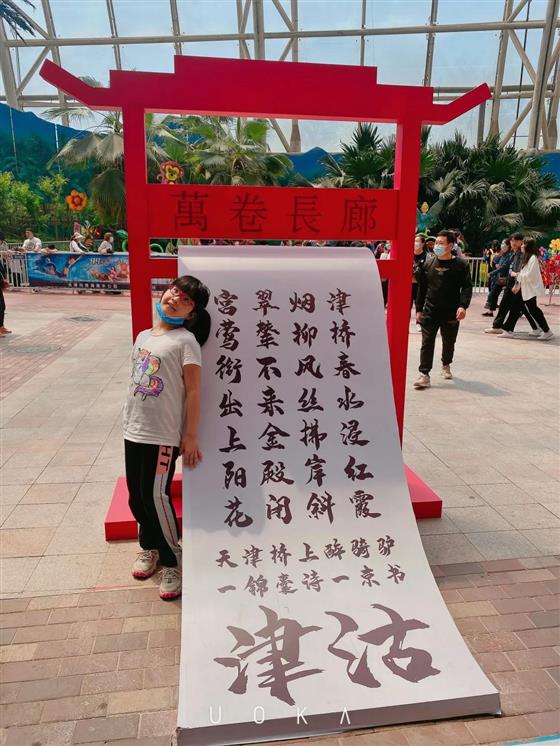 萬卷長廊
津桥春水浸红霞
烟柳风丝拂岸斜
翠辇不来金殿闭
宫莺衔出上阳花
天津桥上醉骑驴
一锦囊诗一束书
津沽
HT
UOKA